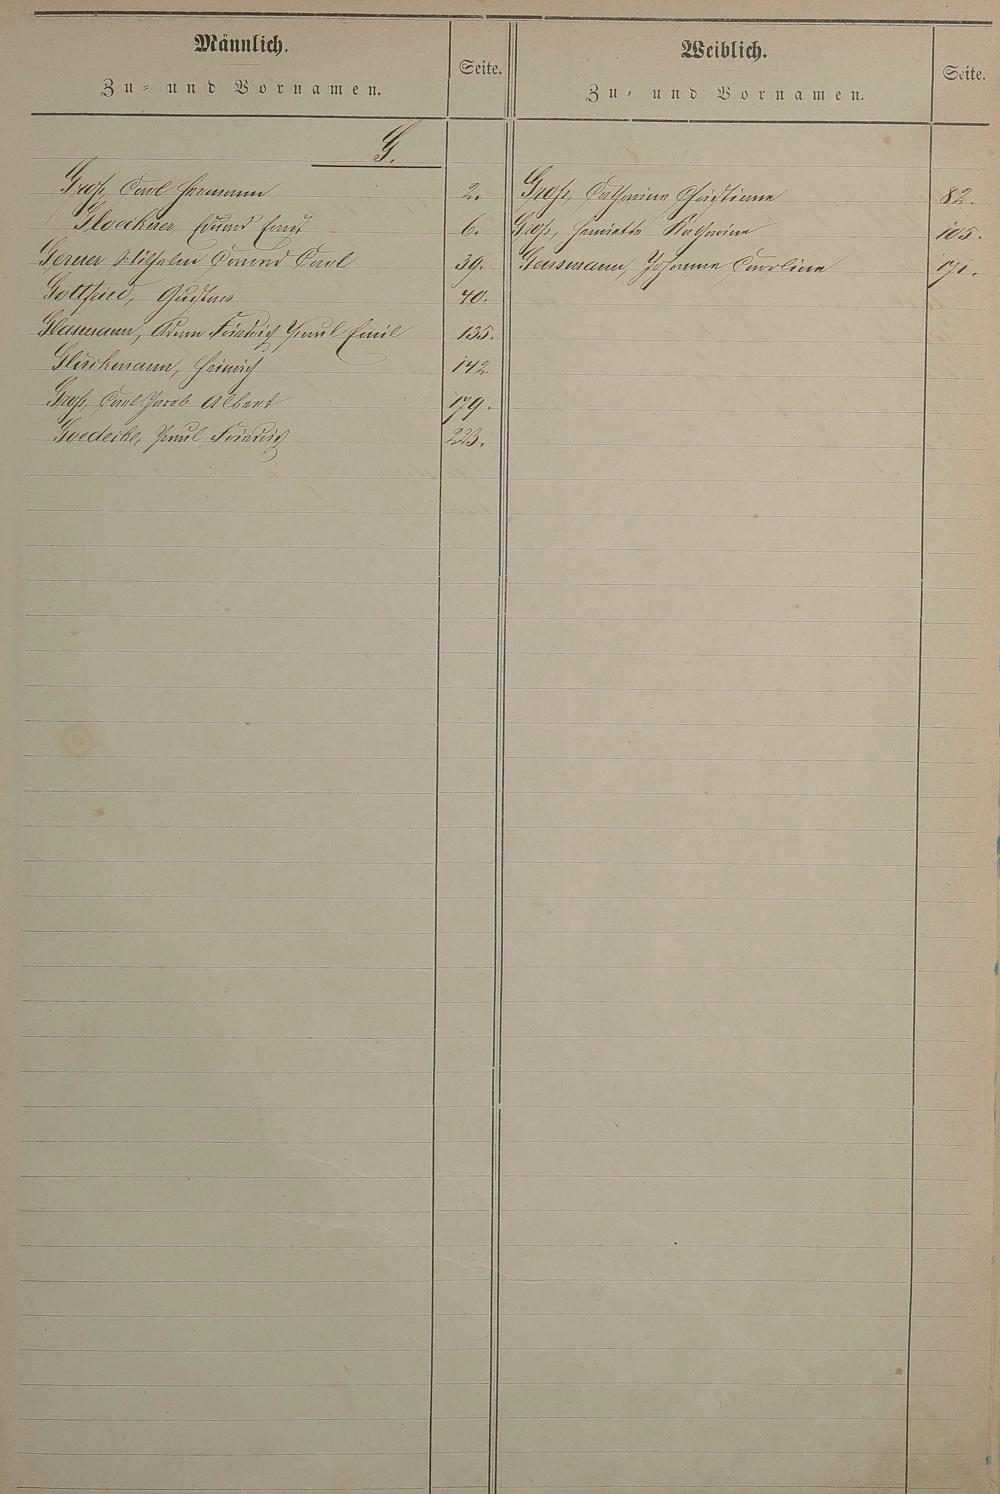 Männlich.
Zu- und Vornamen.
Seite.
Weiblich.
Zu- und Vornamen.
Seite.
G.
Groß, Carl Hermann 2.
Gloeckner, Eduard Ernst 6.
Gerner Wilhelm Conrad Carl 39.
Gottfried, Gustav 40.
Glasmann, Adam Friedrich Paul Emil 135.
Glückmann, Heinrich 142.
Groß, Carl Jacob Albert 179.
Goedecke, Paul Friedrich 223.
Groß, Catharina Christiane 82.
Groß, Henriette Katharina 105.
Gassmann, Johanna Caroline 171.